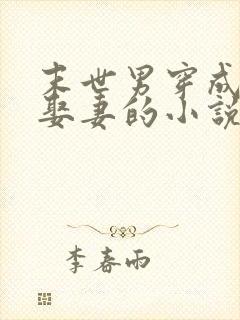 末世男穿成
娶妻的小説
李春雨